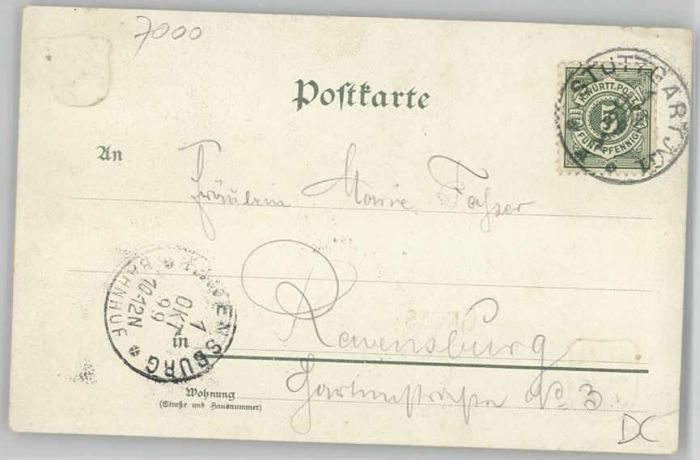 7000
Postkarte
K. WÜRTT. POST
5
FÜNF PFENNIG
STUTTGART
An
Fräulein Marie
RAVENSBURG
BAHNHOF
1 OKT 99
10-12N
in
Ravensburg
Gartenstraße No 3.
Wohnung
(Straße und Hausnummer)
DC